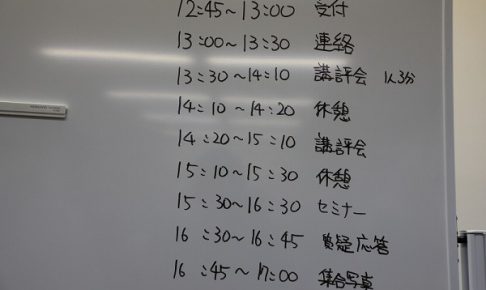 12:45～13:00 受付
13:00～13:30 連絡
13:30～14:10 講評会 1人3分
14:10～14:20 休憩
14:20～15:10 講評会
15:10～15:30 休憩
15:30～16:30 セミナー
16:30～16:45 質疑応答
16:45～17:00 集合写真